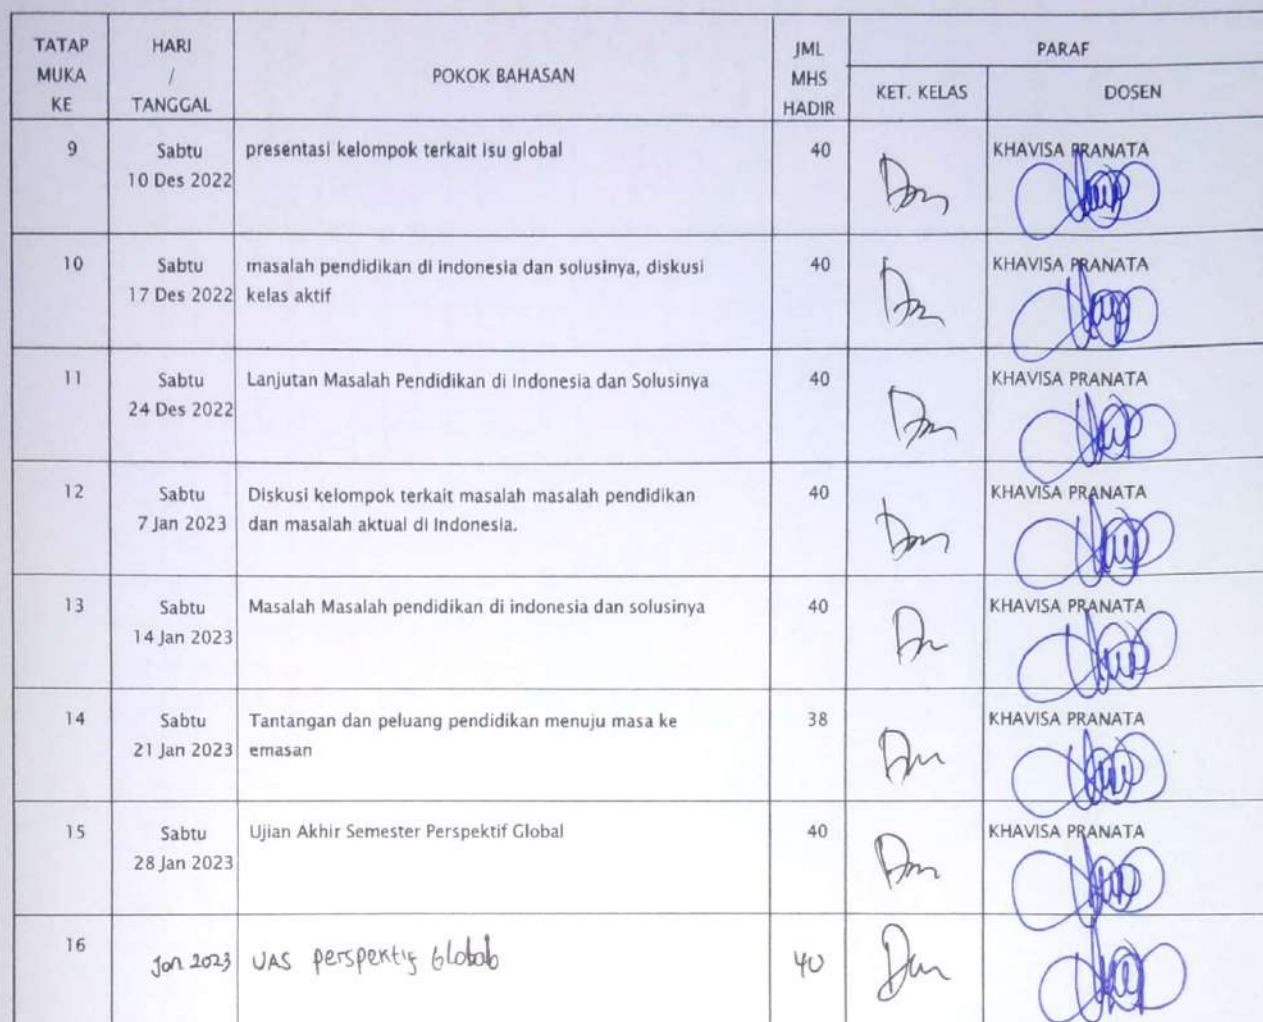 TATAP MUKA KE
HARI / TANGGAL
POKOK BAHASAN
JML MHS HADIR
PARAF
KET. KELAS
DOSEN
9
Sabtu
10 Des 2022
presentasi kelompok terkait isu global
40
KHAVISA PRANATA
10
Sabtu
17 Des 2022
masalah pendidikan di indonesia dan solusinya, diskusi
kelas aktif
40
KHAVISA PRANATA
11
Sabtu
24 Des 2022
Lanjutan Masalah Pendidikan di Indonesia dan Solusinya
40
KHAVISA PRANATA
12
Sabtu
7 Jan 2023
Diskusi kelompok terkait masalah masalah pendidikan
dan masalah aktual di Indonesia.
40
KHAVISA PRANATA
13
Sabtu
14 Jan 2023
Masalah Masalah pendidikan di indonesia dan solusinya
40
KHAVISA PRANATA
14
Sabtu
21 Jan 2023
Tantangan dan peluang pendidikan menuju masa ke
emasan
38
KHAVISA PRANATA
15
Sabtu
28 Jan 2023
Ujian Akhir Semester Perspektif Global
40
KHAVISA PRANATA
16
Jan 2023
UAS perspektif Global
40